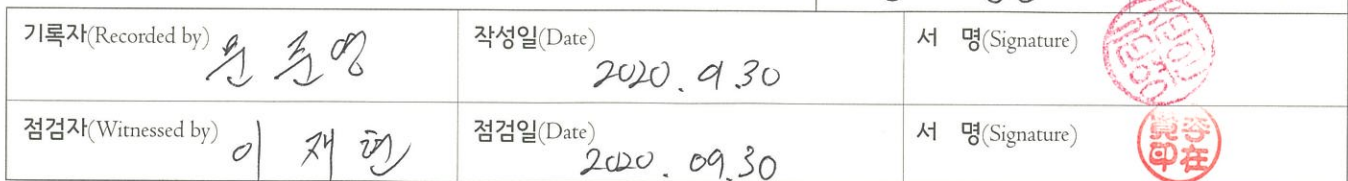 기록자(Recorded by) 윤 준 영 작성일(Date) 2020. 9.30 서 명(Signature)
점검자(Witnessed by) 이 재 현 점검일(Date) 2020. 09.30 서 명(Signature)
李在賢印